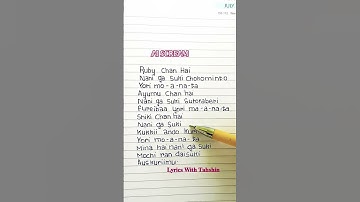 AI SCREAM
Ruby Chan Hai
Nani ga Suki Chokominto
Yori mo-a-na-ta
Ayumu Chan hai
Nani ga Suki Sutoraberi
Fureibaa Yori ma-a-na-ta
Shiki Chan hai
Nani ga Suki
Kukkii ando
Yori mo-a-na-ta
Mina hai nani ga Suki
Mochi ran daisuki
Auskuriimu
Lyrics With Tahshin